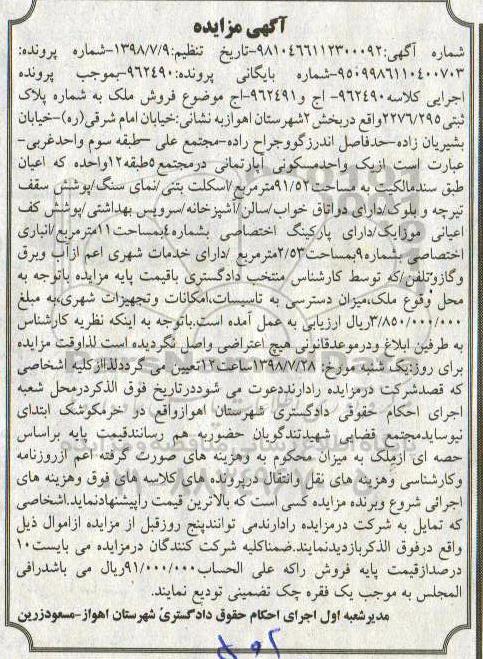 آگهی مزایده
شماره آگهی:۹۸۱۰۴۶۶۱۱۲۳۰۰۰۹۲-تاریخ تنظیم:۱۳۹۸/۷/۹-شماره پرونده:
۹۵۰۹۹۸۶۱۱۰۴۰۰۷۰۳-شماره بایگانی پرونده:۹۶۲۴۹۰-بموجب پرونده
اجرایی کلاسه ۹۶۲۴۹۰- اج و ۹۶۲۴۹۱-اج موضوع فروش ملک به شماره پلاک
ثبتی ۲۲۷۶/۲۹۵واقع دربخش۲شهرستان اهوازبه نشانی:خیابان امام شرقی(ره)-خیابان
بشیریان زاده-حدفاصل اندرزگووجراح زاده-مجتمع علی -طبقه سوم واحدغربی-
عبارت است ازیک واحدمسکونی آپارتمانی درمجتمع۵طبقه۱۲واحده که اعیان
طبق سندمالکیت به مساحت۹۱/۵۲مترمربع/اسکلت بتنی/نمای سنگ/پوشش سقف
تیرچه و بلوک/دارای دواتاق خواب/سالن/آشپزخانه/سرویس بهداشتی/پوشش کف
اعیانی موزاییک/دارای پارکینگ اختصاصی بشماره۴بمساحت۱۱مترمربع/انباری
اختصاصی بشماره۹بمساحت۲/۵۳مترمربع /دارای خدمات شهری اعم ازآب وبرق
وگازوتلفن/که توسط کارشناس منتخب دادگستری باقیمت پایه مزایده باتوجه به
محل وقوع ملک،میزان دسترسی به تاسیسات،امکانات وتجهیزات شهری،به مبلغ
۳/۸۵۰/۰۰۰/۰۰۰ریال ارزیابی به عمل آمده است.باتوجه به اینکه نظریه کارشناس
به طرفین ابلاغ ودرموعدقانونی هیچ اعتراضی واصل نگردیده است لذاوقت مزایده
برای روز:یک شنبه مورخ: ۱۳۹۸/۷/۲۸ساعت۱۲تعیین می گرددلذاازکلیه اشخاصی
که قصدشرکت درمزایده رادارنددعوت می شوددرتاریخ فوق الذکردرمحل شعبه
اجرای احکام حقوقی دادگستری شهرستان اهوازواقع در خرمکوشک ابتدای
نیوسایدمجتمع قضایی شهیدتندگویان حضوربه هم رسانندقیمت پایه براساس
حصه ای ازملک به میزان محکوم به وهزینه های صورت گرفته اعم ازروزنامه
وکارشناسی وهزینه های نقل وانتقال درپرونده های کلاسه های فوق وهزینه های
اجرائی شروع وبرنده مزایده کسی است که بالاترین قیمت راپیشنهادنماید.اشخاصی
که تمایل به شرکت درمزایده رادارندمی توانندپنج روزقبل از مزایده ازاموال ذیل
واقع درفوق الذکربازدیدنمایند.ضمناکلیه شرکت کنندگان درمزایده می بایست۱۰
درصدازقیمت پایه فروش راکه علی الحساب۹۱/۰۰۰/۰۰۰ریال می باشدرافی
المجلس به موجب یک فقره چک تضمینی تودیع نمایند.
مدیرشعبه اول اجرای احکام حقوق دادگستری شهرستان اهواز-مسعودزرین